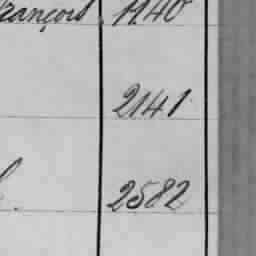 François 1140
2141
2582